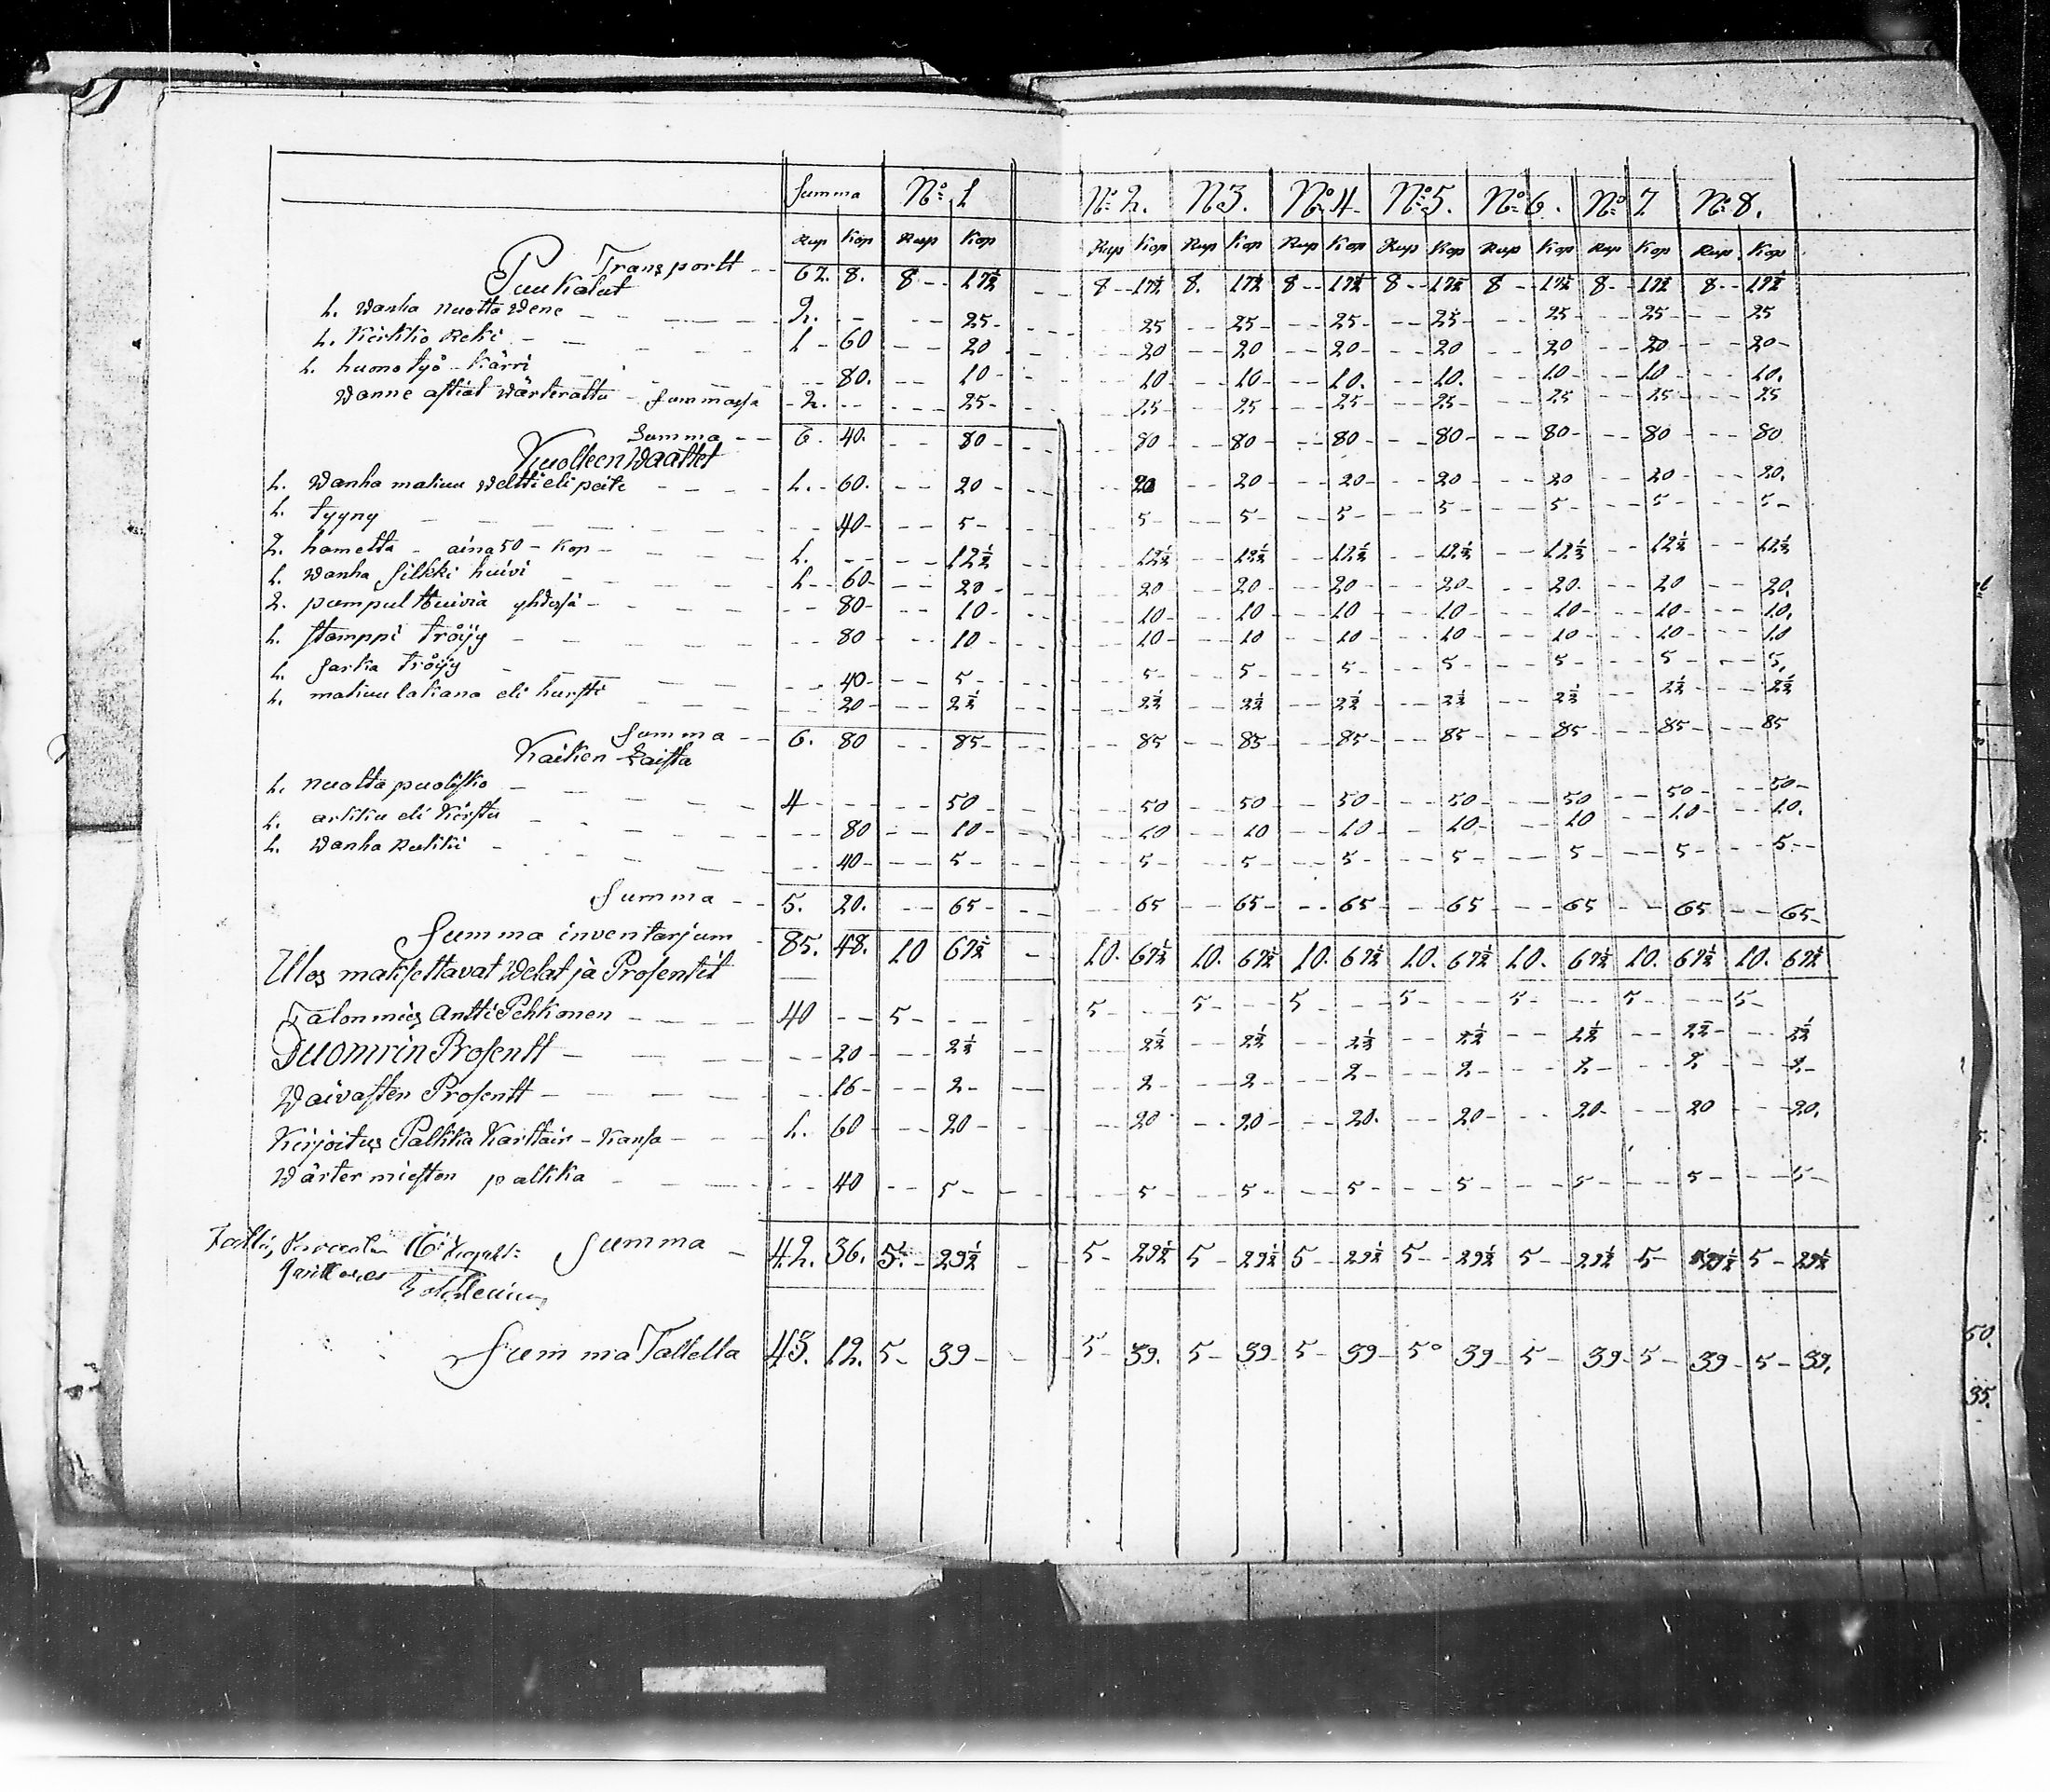 Summa N:o 1 N:o 2. N 3. N:o 4 N:o 5. N:o 6. N:o 7 N:o 8.
Rup Kop Rup Kop Rup Kop Rup Kop Rup Kop Rup Kop Rup Kop Rup Kop Rup Kop
Transportt - 67. 8. 8 - 17½ 8 - 17½ 8. 17½ 8 - 17½ 8 - 17½ 8 - 17½ 8 - 17½ 8 - 17½
Puukalut
1. Wanha nuotta wene - 2. - 25 - 25 - 25 - 25 - 25 - 25 - 25 - 25
1. Kirkko Reki - 1 - 60 - 20 - 20 - 20 - 20 - 20 - 20 - 20 - 20 -
1. huono työ Kärri - 80. - 10 - 10 - 10 - 10. - 10. - 10 - 10 - 10.
Wanne astiat wärterattu - Summassa - 2. - 25 - 25 - 25 - 25 - 25 - 25 - 25 - 25
Summa - 6. 40. - 80 - 80 - 80 - 80 - 80 - 80 - 80 - 80
Kuolleen Waattet
1. Wanha maliuu weltti eli peite - 1. - 60. - 20 - 20 - 20 - 20 - 20 - 20 - 20 - 20.
1. tyyny - 40 - 5 - 5 - 5 - 5 - 5 - 5 - 5 - 5 -
2. hametta - aina 50 - Kop - 1. - 12½ - 12½ - 12½ - 12½ - 12½ - 12½ - 12½ - 12½
1. Wanha Silkki huivi - 1 - 60 - 20 - 20 - 20 - 20 - 20 - 20. - 20 - 20.
2. pumpul huivia yhdessä - 80 - 10 - 10 - 10 - 10 - 10 - 10 - 10 - 10.
1. stamppi tröijy - 80 - 10 - 10 - 10 - 10 - 10 - 10 - 10 - 10
1. Sarka tröijy - 40 - 5 - 5 - 5 - 5 - 5 - 5 - 5 - 5.
1. maliuu lakana eli hursti - 20 - 2½ - 2½ - 2½ - 2½ - 2½ - 2½ - 2½ - 2½
Summa - 6. 80 - 85 - 85 - 85 - 85 - 85 - 85 - 85 - 85
Kaiken Laista
1. nuotta puolisko - 4 - 50 - 50 - 50 - 50 - 50 - 50 - 50 - 50 -
1. arkku eli Kirstu - 80 - 10 - 10 - 10 - 10 - 10 - 10 - 10 - 10.
1. Wanha Rukki - 40 - 5 - 5 - 5 - 5 - 5 - 5 - 5 - 5 -
Summa - 5. 20. - 65 - 65 - 65 - 65 - 65 - 65 - 65 - 65 -
Summa inventarjum 85. 48. 10 67½ - 10. 67½ 10. 67½ 10. 67½ 10. 67½ 10. 67½ 10. 67½ 10. 67½
Ulos maksettavat Welat ja Prosentit
Talon mies Antti Pehkonen - 40 - 5 - 5 - 5 - 5 - 5 - 5 - 5 - 5 -
Duomrin Prosentt - 20 - 2½ - 2½ - 2½ - 2½ - 2½ - 2½ - 2½ - 2½
Waivasten Prosentt - 16 - 2 - 2 - 2 - 2 - 2 - 2 - 2 - 2 -
Kirjoitus Palkka Karttain - Kansa - 1. 60 - 20 - 20 - 20 - 20. - 20 - 20 - 20 - 20.
Wärter miesten palkka - 40 - 5 - 5 - 5 - 5 - 5 - 5 - 5 - 5 -
Summa - 42. 36. 5. - 29½ - 5 - 29½ 5 - 29½ 5 - 29½ 5 - 29½ 5 - 29½ 5 - 29½ 5 - 29½
Summa Tallella 43. 12. 5 - 39 - 5 - 39. 5 - 39 5 - 39 - 5 39 5 - 39 5 - 39 - 5 - 39.
50.
35.